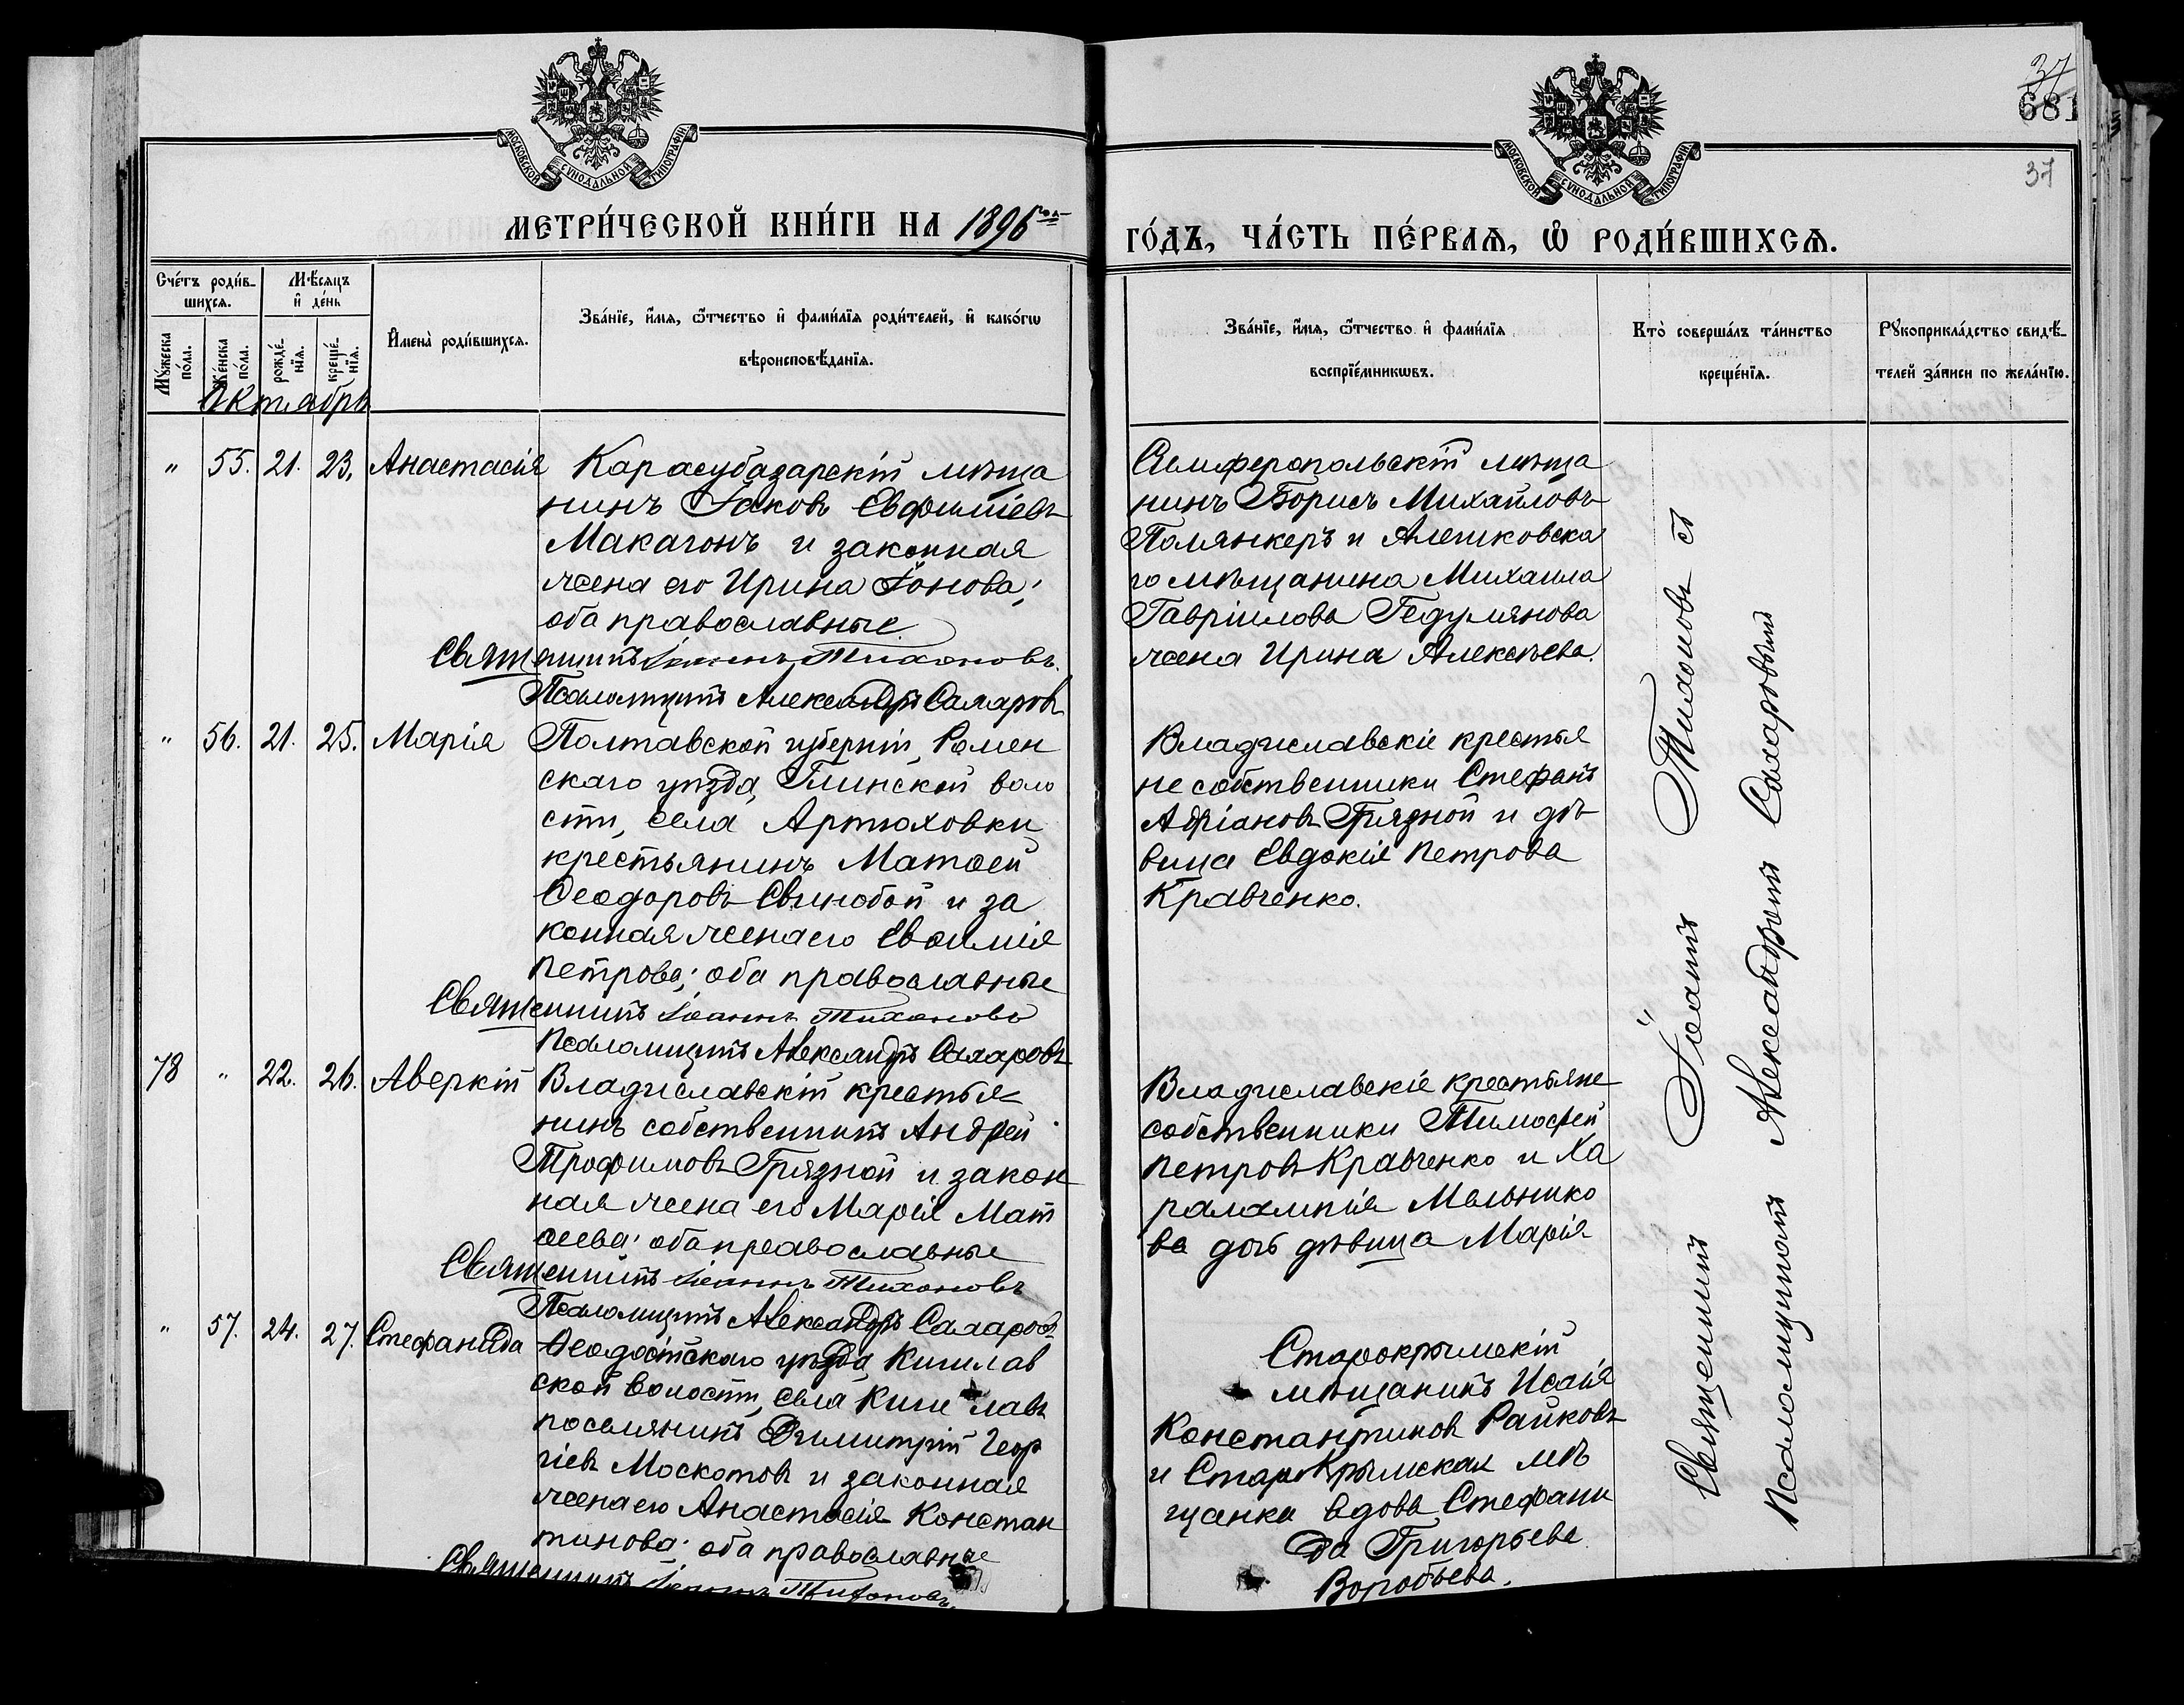 37
681
37
МОСКОВСКОЙ СѴНОДАЛЬНОЙ ТИПОГРАФІИ
МОСКОВСКОЙ СѴНОДАЛЬНОЙ ТИПОГРАФІИ
МЕТРИ́ЧЕСКОЙ КНИ́ГИ НА 1896 год
ГО́ДЪ, ЧА́СТЬ ПЕ́РВАѦ, Ѽ РОДИ́ВШИХСѦ.
Сче́тъ роди́в-
шихсѧ.
Мѣ́сѧцъ
и҆ де́нь
Мꙋ́жеска по́ла.
Же́нска по́ла.
рожде́-
нїѧ.
креще́-
нїѧ.
И҆мена̀ роди́вшихсѧ.
Зва́нїе, и҆́мѧ, ѻ҆́тчество и҆ фами́лїѧ роди́телей, и҆ како́гѡ
вѣроисповѣ́данїѧ.
Зва́нїе, и҆́мѧ, ѻ҆́тчество и҆ фами́лїѧ
воспрїе́мникѡвъ.
Кто̀ соверша́лъ та́инство
креще́нїѧ.
Рꙋкоприкла́дство свидѣ́-
телей за́писи по жела́нїю.
Октябрь
" 55. 21. 23. Анастасія Карасубазарскій мѣща
нинъ Іаковъ Евфиміевъ
Макагонъ и законная
жена его Ирина Іонова;
оба православные.
Священникъ Іоаннъ Тихоновъ.
Псаломщикъ Александръ Сахаровъ
Симферопольскій мѣща
нинъ Борисъ Михайловъ
Полянкеръ и Алешковска
го мѣщанина Михаила
Гавріилова Гедулянова
жена Ирина Алексѣева.
" 56. 21. 25. Марія Полтавской губерніи, Ромен
скаго уѣзда, Глинской воло
сти, села Артюховки
крестьянинъ Матѳей
Ѳеодоровъ Свинобой и за
конная жена его Евѳимія
Петрова; оба православные
Священникъ Іоаннъ Тихоновъ
Псаломщикъ Александръ Сахаровъ
Владиславскіе крестья
не собственники Стефанъ
Адріановъ Грязной и дѣ
вица Евдокія Петрова
Кравченко.
78 " 22. 26. Аверкій Владиславскій крестья
нинъ собственникъ Андрей
Трофимовъ Грязной и закон
ная жена его Марія Мат
ѳеева; оба православные
Священникъ Іоаннъ Тихоновъ
Псаломщикъ Александръ Сахаровъ
Владиславскіе крестьяне
собственники Тимофей
Петровъ Кравченко и Ха
ралампія Мельнико
ва дочь дѣвица Марія
" 57. 24. 27. Стефанида Ѳеодосійскаго уѣзда, Кишлав
ской волости, села Кишлавъ
поселянинъ Димитрій Геор
гіевъ Москотовъ и законная
жена его Анастасія Констан
тинова; оба православные
Священникъ Іоаннъ Тихоновъ.
Старокрымскій
мѣщанинъ Исаія
Константиновъ Райковъ
и Старокрымская мѣ
щанка вдова Стефани
да Григорьева
Воробьева.
Священникъ Іоаннъ Тихоновъ
Псаломщикъ Александръ Сахаровъ